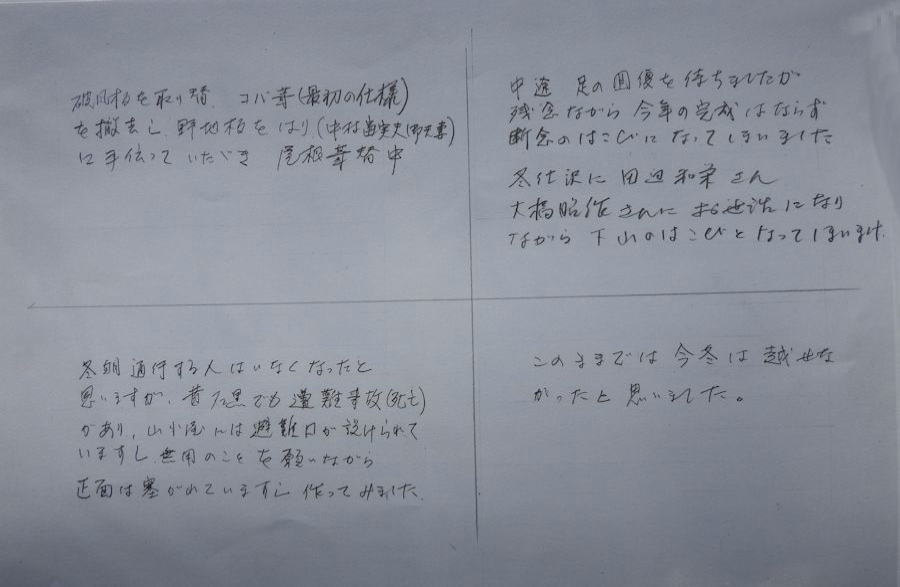 破風板を取り替 コバ葺(最初の仕様)
を撤去し 野地板をはり(中村 夫御夫妻)
に手伝っていただき 屋根葺替中
中途 足の回復を待ちましたが
残念ながら 今年の完成はならず
断念のはこびになってしまいました
冬仕沢に 田辺和栄さん
大橋昭作さんに お世話になり
ながら 下山のはこびとなってしまいました
冬期通行する人はいなくなったと
思いますが、昔 でも遭難事故(死亡)
があり、山小屋には避難口が設けられて
いますし 無用のことを願いながら
正面は塞がれていますし 作ってみました
このままでは 今冬は 越せな
かったと思いました。